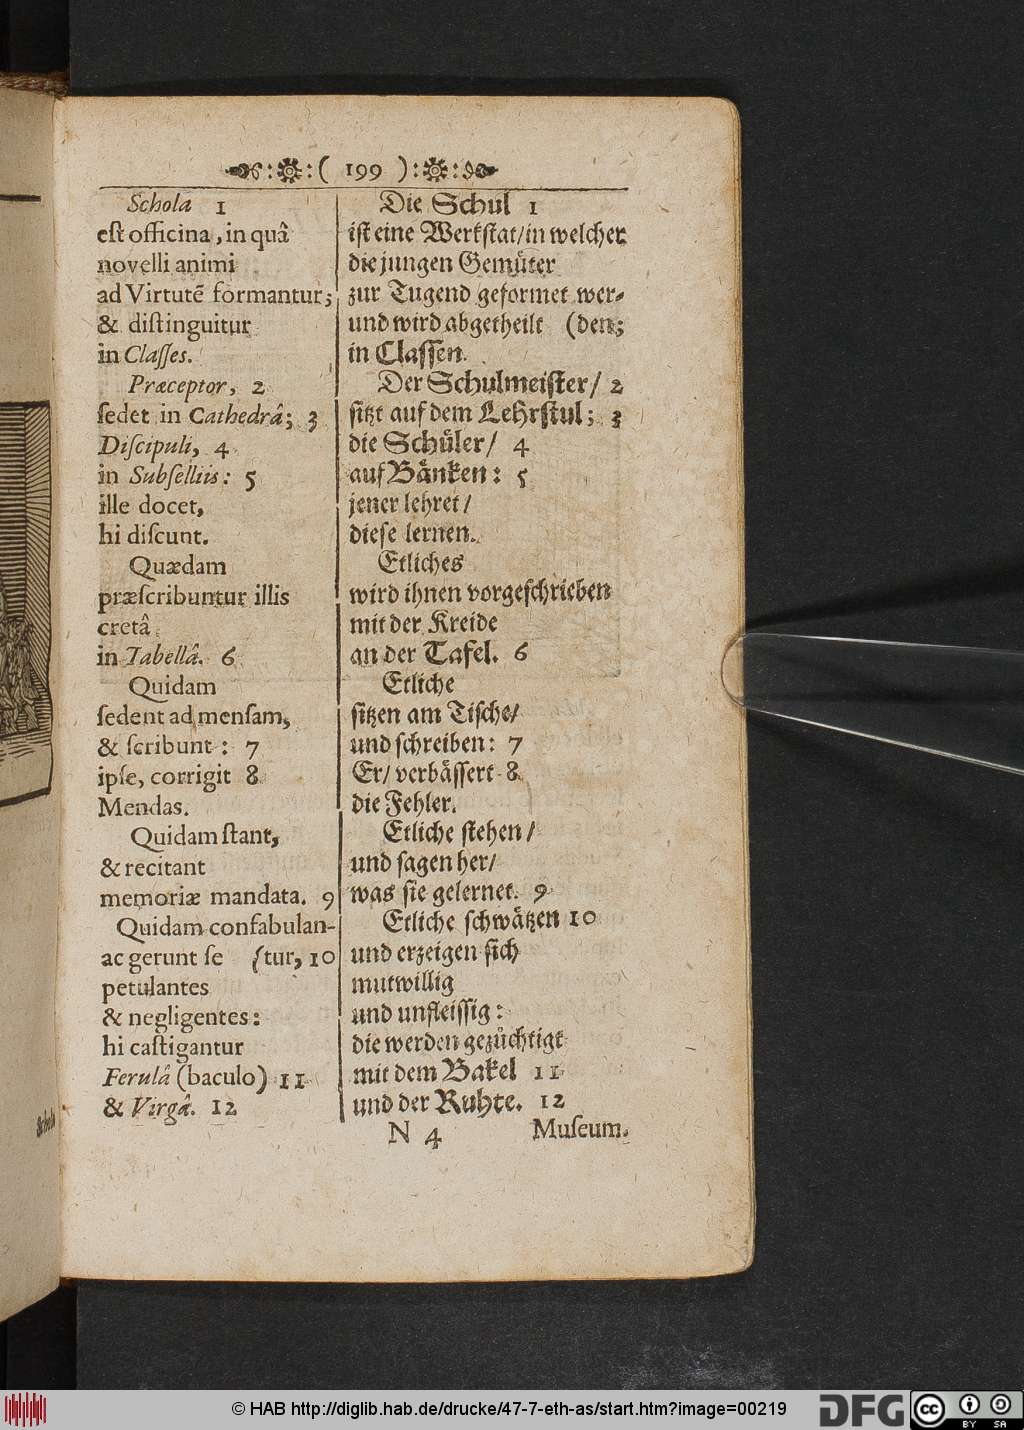 ( 199 )
Schola 1
est officina, in quâ
novelli animi
ad Virtutẽ formantur;
& distinguitur
in Classes.
Præceptor, 2
sedet in Cathedrâ; 3
Discipuli, 4
in Subselliis: 5
ille docet,
hi discunt.
Quædam
præscribuntur illis
cretâ
in Tabellâ. 6
Quidam
sedent ad mensam,
& scribunt: 7
ipse, corrigit 8
Mendas.
Quidam stant,
& recitant
memoriæ mandata. 9
Quidam confabulan-
ac gerunt se (tur, 10
petulantes
& negligentes:
hi castigantur
Ferulâ (baculo) 11
& Virgâ. 12
Die Schul 1
ist eine Werkstat/ in welcher
die jungen Gemüter
zur Tugend geformet wer-
und wird abgetheilt (den;
in Classen.
Der Schulmeister/ 2
sitzt auf dem Lehrstul; 3
die Schüler/ 4
auf Bänken: 5
jener lehret/
diese lernen.
Etliches
wird ihnen vorgeschrieben
mit der Kreide
an der Tafel. 6
Etliche
sitzen am Tische/
und schreiben: 7
Er/ verbässert 8
die Fehler.
Etliche stehen/
und sagen her/
was sie gelernet. 9
Etliche schwätzen 10
und erzeigen sich
mutwillig
und unfleissig:
die werden gezüchtigt
mit dem Bakel 11
und der Ruhte. 12
N 4 Museum.
© HAB http://diglib.hab.de/drucke/47-7-eth-as/start.htm?image=00219
DFG
cc BY SA